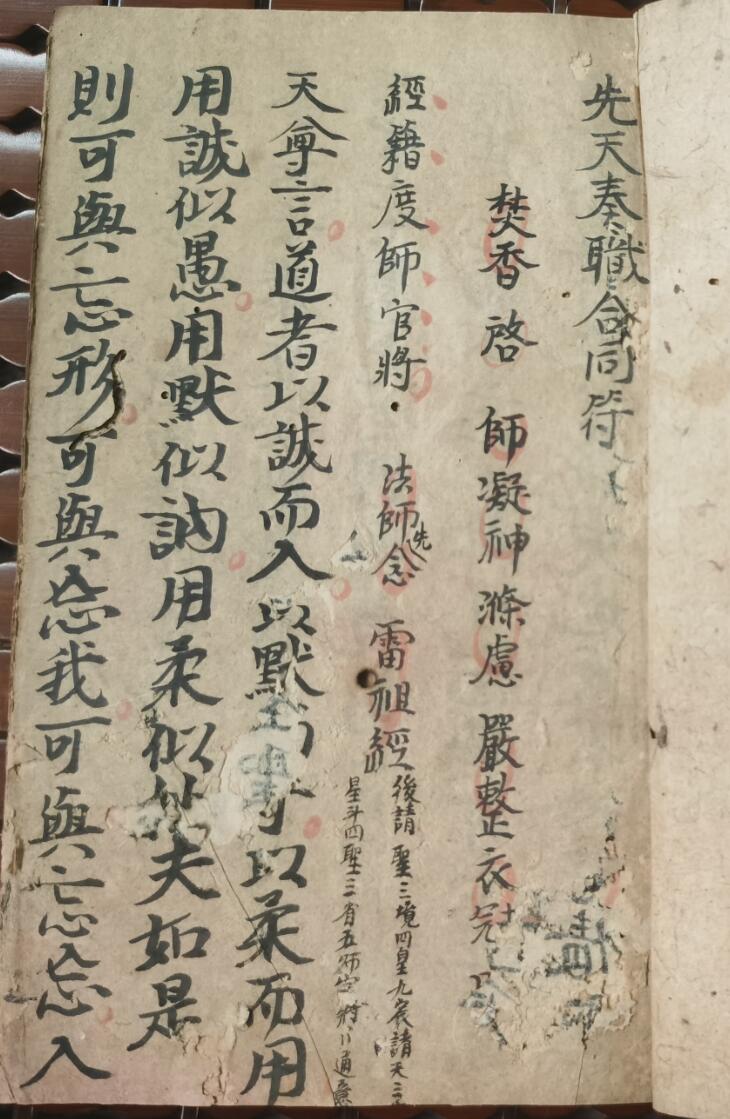 先天奏職合同符
焚香啓 師凝神滌慮嚴整衣冠
經籍度師官將 法師先念 雷祖經
後請聖三境四皇九宸諸天三
星斗四聖三省五師官將
天尊言道者以誠而入以默 以柔而用
用誠似愚用默似訥用柔似拙夫如是
則可與忘形可與忘我可與忘忘入